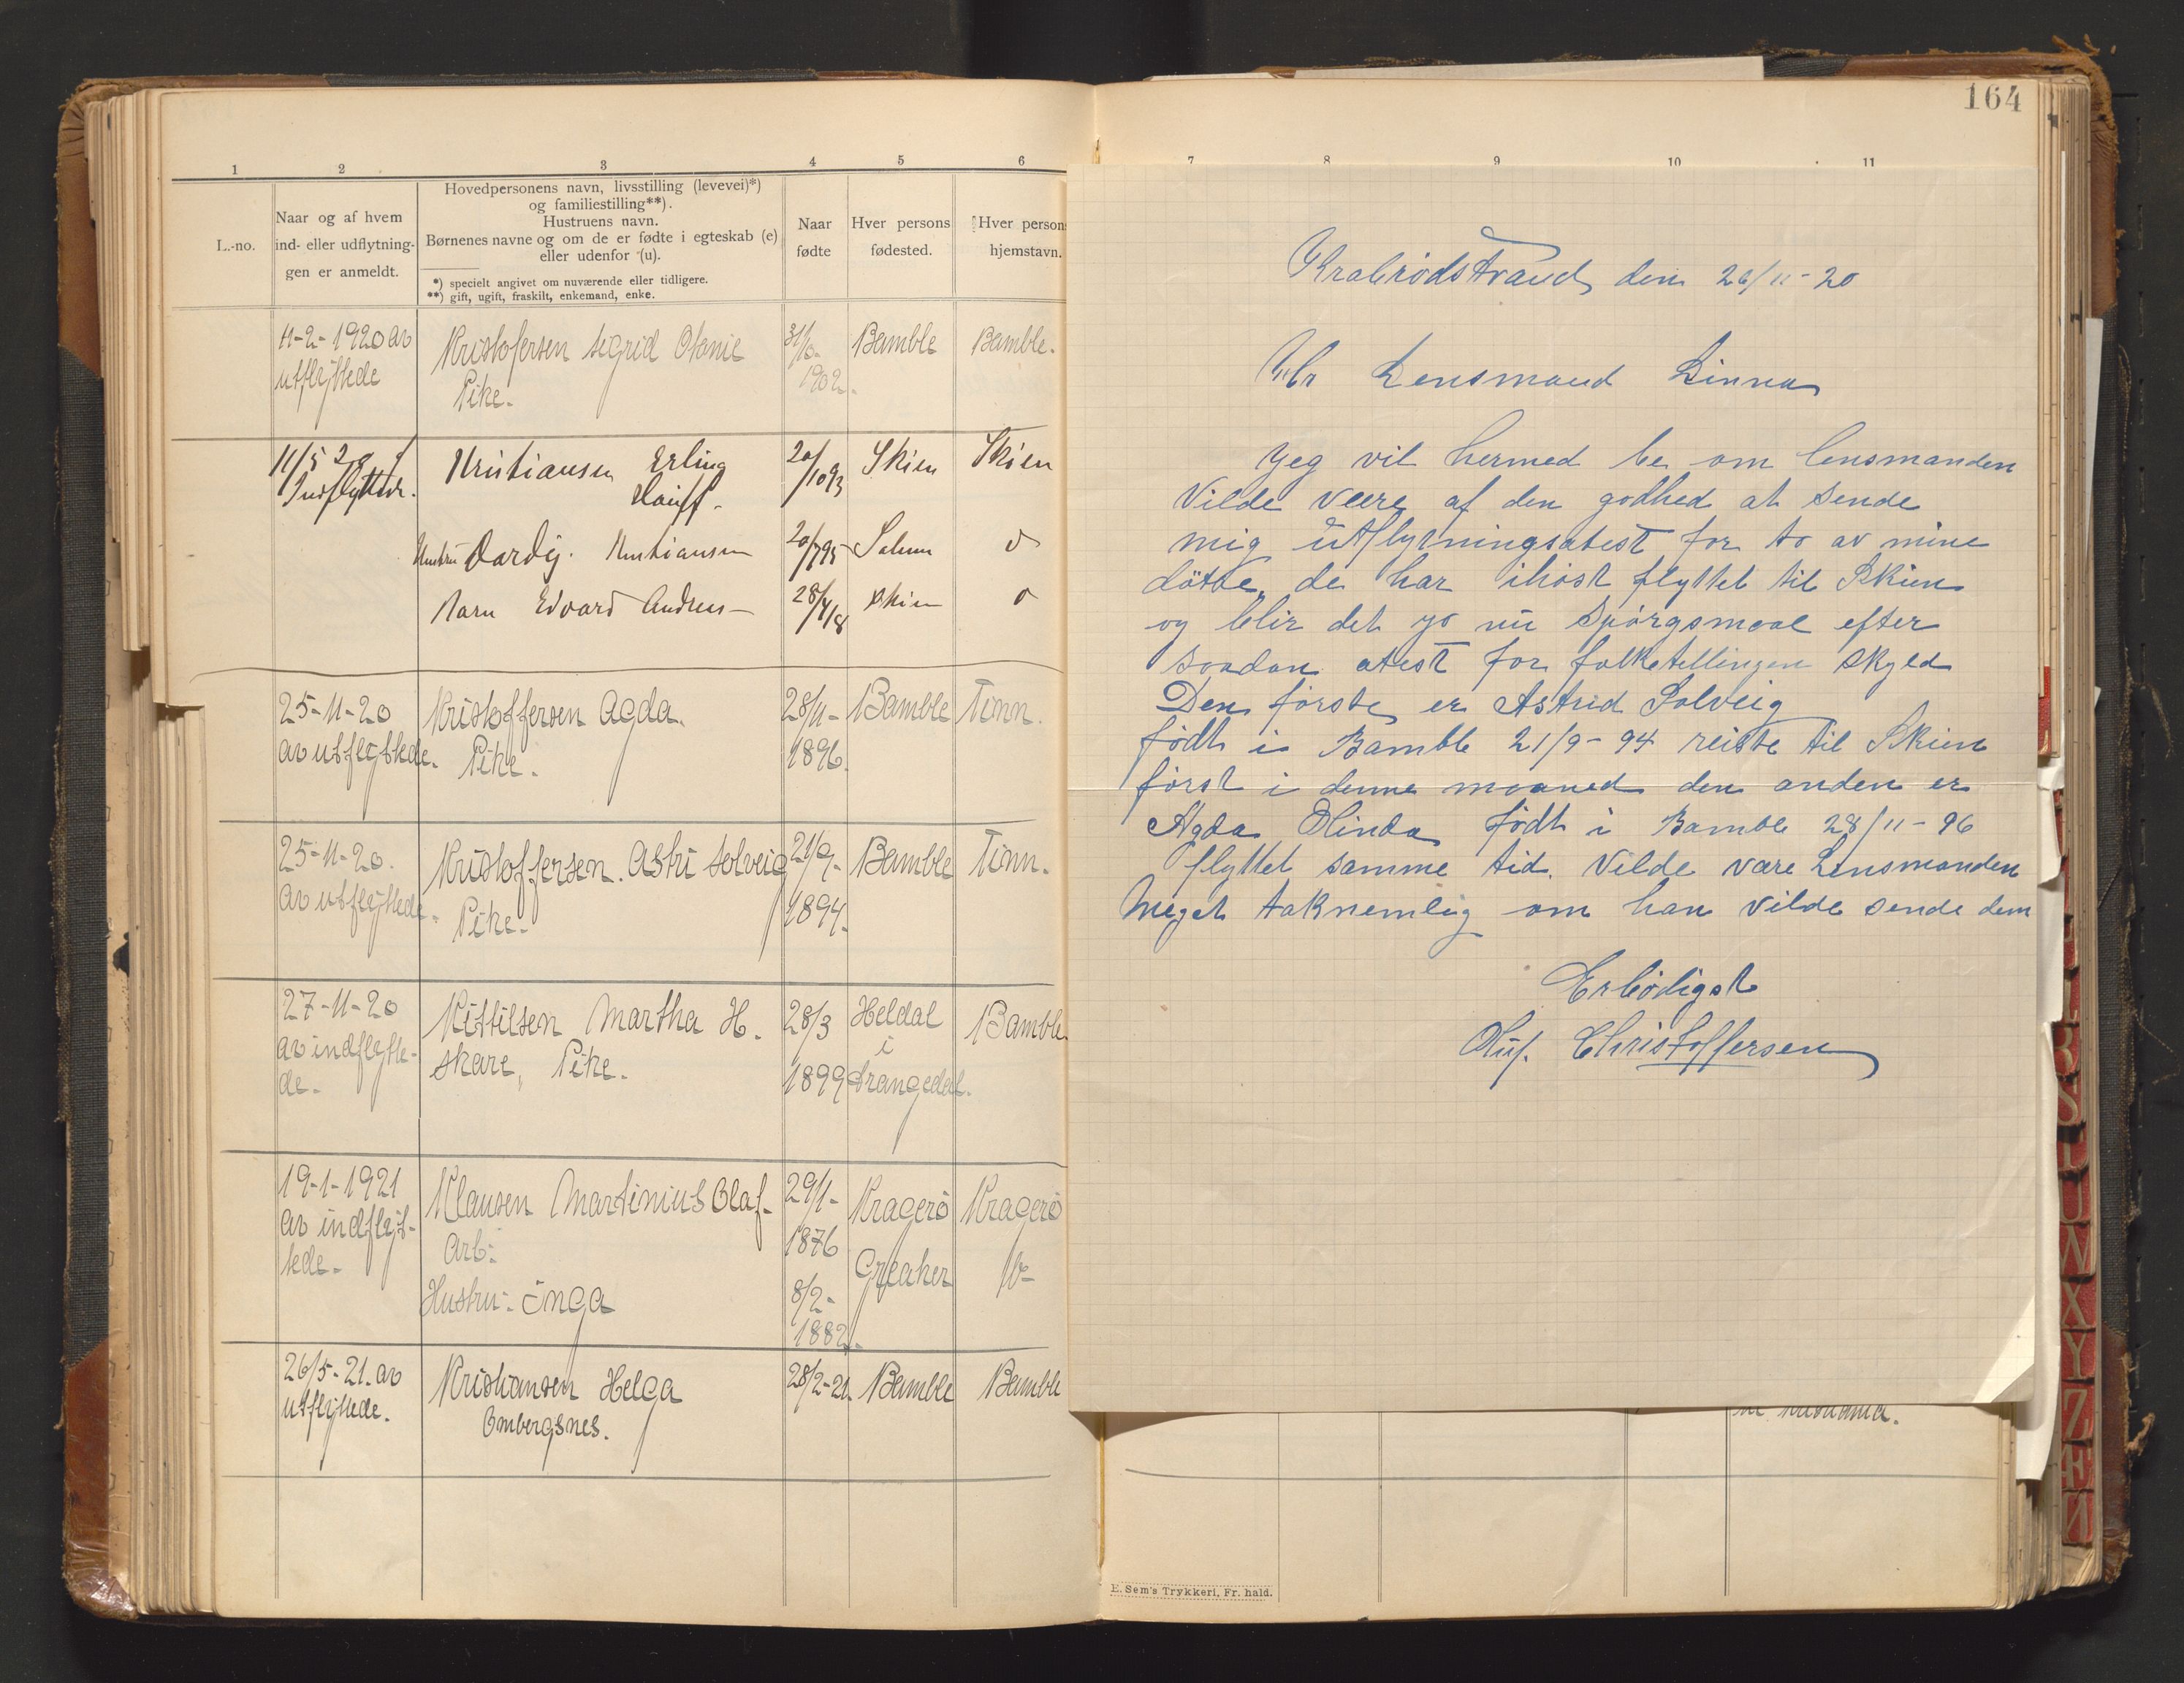 1 2 3 4 5 6
L.-no.
Naar og af hvem
ind- eller udflytnin-
gen er anmeldt.
Hovedpersonens navn, livsstilling (levevei)*)
og familiestilling**).
Hustruens navn.
Børnenes navne og om de er fødte i egteskab (e)
eller udenfor (u).
*) specielt angivet om nuværende eller tidligere.
**) gift, ugift, fraskilt, enkemand, enke.
Naar
fødte
Hver persons
fødested.
Hver persons
hjemstavn.
11-2-1920 av Kristofersen Sigrid Otanie 31/10- Bamble Bamble.
utflyttede Pike. 1902.
11/5 20 Kristiansen Erling 20/10 93 Skien Skien
Indflyttede. Hauff.
Hustru Dardig. Kristiansen 20/7 95 Solum
Barn Edvard Andreas 28/4/18 Skien
25-11-20 Kristoffersen Agda. 28/11- Bamble Tinn.
av utflyttede. Pike. 1896.
25-11-20. Kristoffersen. Astri Solveig 21/9- Bamble Tinn.
av utflyttede. Pike. 1894.
27-11-20 Kittilsen Martha H. 28/3 Heldal Bamble
av indflytte- skare, Pike. i
de. 1899 Drangedal.
19-1-1921 Klausen Martinius Olaf- 29/1- Kragerø Kragerø
av indflyt- Arb: 1876
tede- Greaker
Hustru: Inga 8/2-
1882.
26/5-21. av Kristiansen Helga 28/2-21. Bamble Bamble
utflyttede. Ombergsnes.
164
7 8 9 10 11
Krabrødstrand den 26/11-20
Hr Lensmand Linna
Jeg vil hermed be om lensmanden
Vilde være af den godhed at sende
mig utflytningsatest for to av mine
døtre, de har ihøst flyttet til Skien
og blir det jo nu spørgsmaal efter
saadan atest for folketellingen skyld
Den første er Astrid Solveig
født i Bamble 21/9-94 reiste til Skien
først i denne maaned den anden er
Agda Olinda født i Bamble 28/11-96
flyttet samme tid. Vilde være Lensmanden
Meget taknemlig om han vilde sende dem
Erbødigst
Oluf. Christoffersen
E. Sem's Trykkeri, Fr. hald.